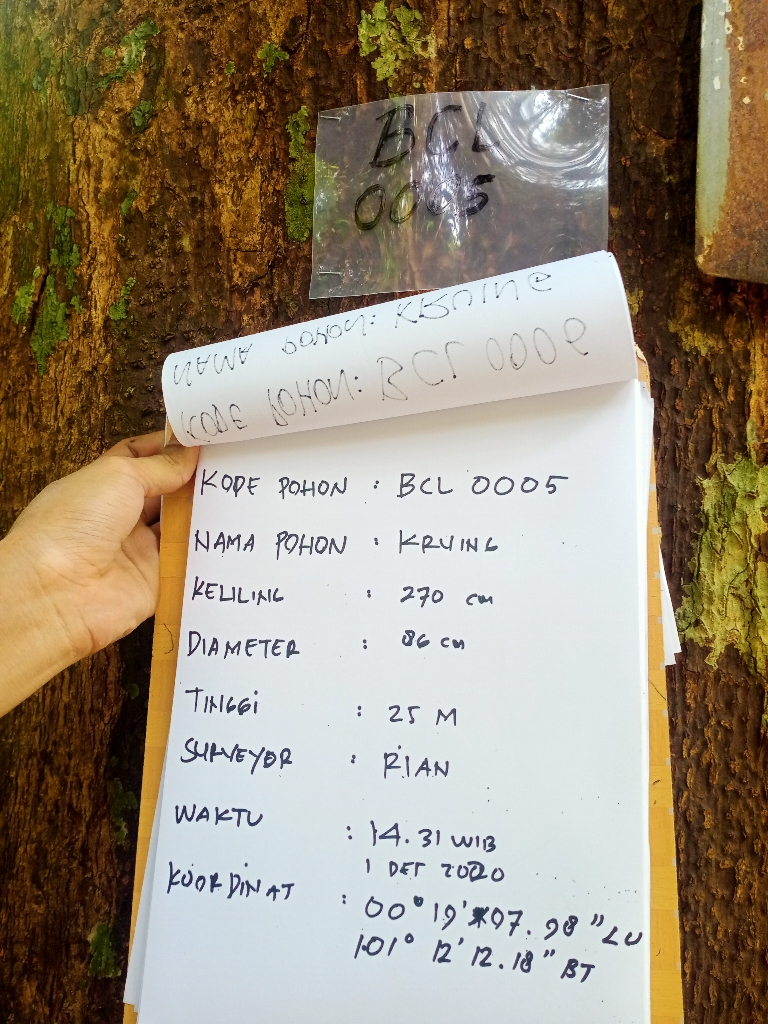 BCL
0005
NAMA POHON: KRUING
KODE POHON: BCL 0006
KODE POHON : BCL 0005
NAMA POHON : KRUING
KELILING : 270 cm
DIAMETER : 86 cm
TINGGI : 25 M
SURVEYOR : RIAN
WAKTU : 14.31 WIB
1 DET 2020
KOORDINAT : 00° 19' 07.98" LU
101° 12' 12.18" BT